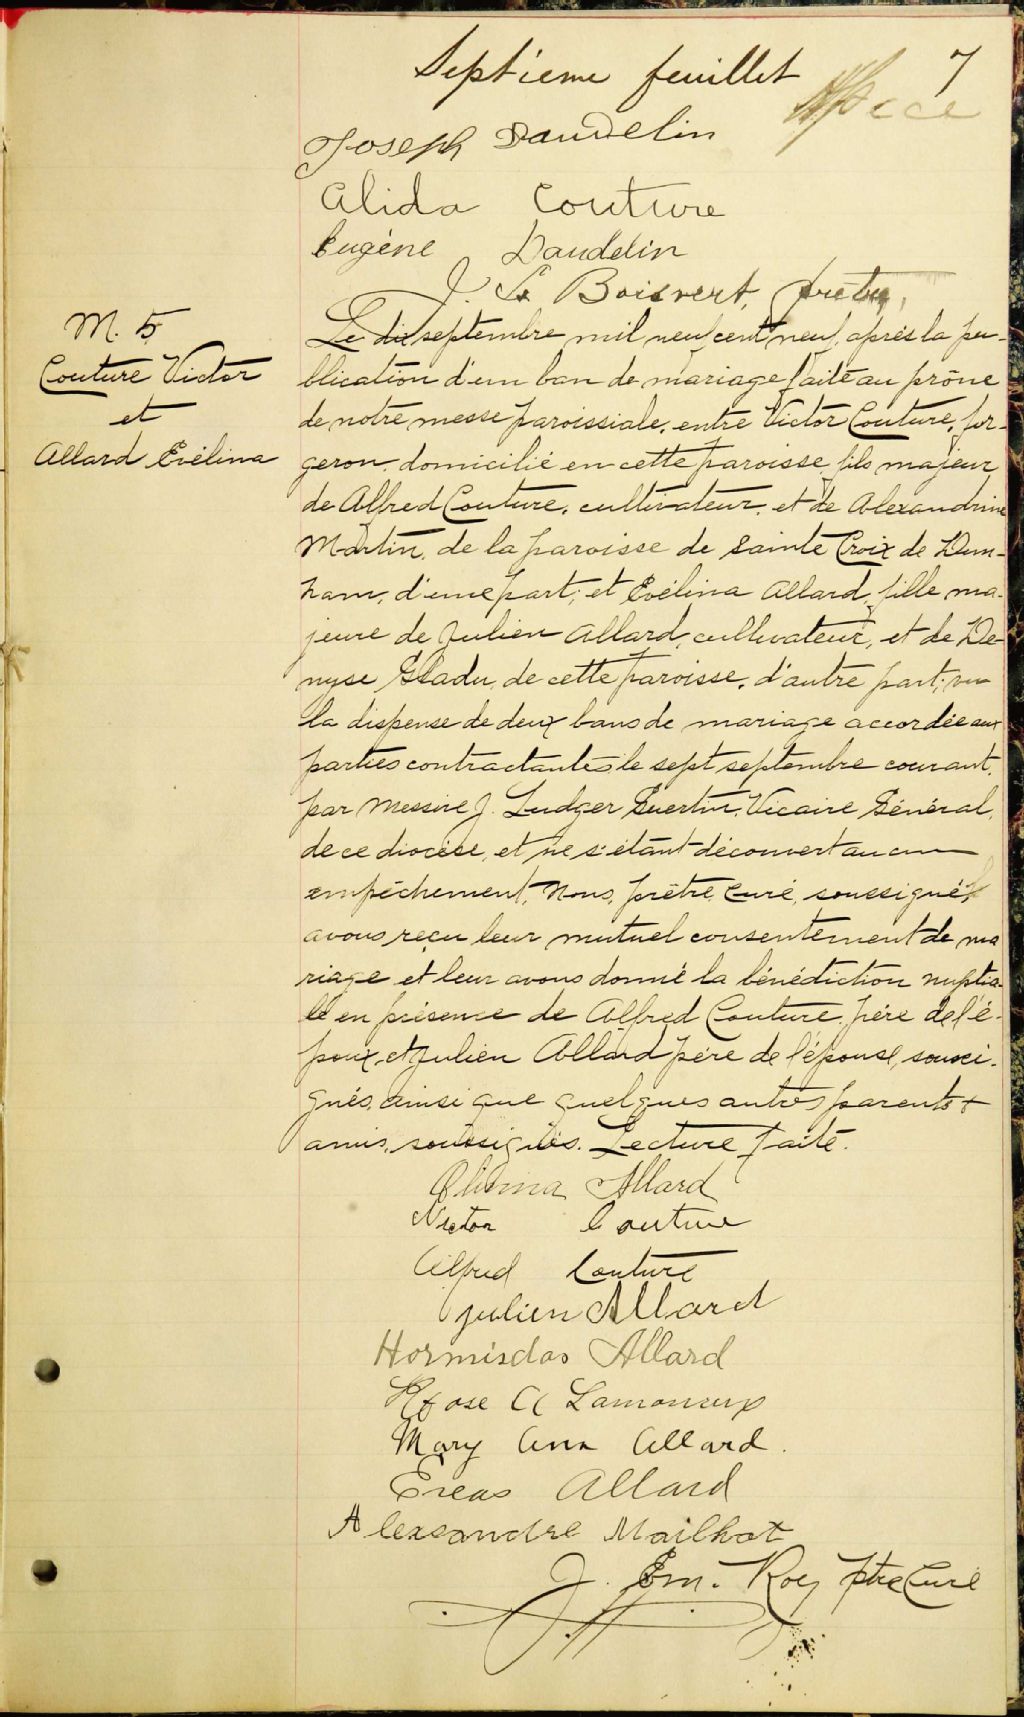 Septième feuillet 7
Joseph Daudelin
Alida Couture
Eugène Daudelin
J. Boisvert, ptre
M. 5
Couture Victor
et
Allard Evélina
Le dix septembre mil neuf cent neuf, après la pu-
blication d'un ban de mariage faite au prône
de notre messe paroissiale, entre Victor Couture, for-
geron, domicilié en cette paroisse, fils majeur
de Alfred Couture, cultivateur, et de Alexandrine
Martin, de la paroisse de Sainte Croix de Dun-
ham, d'une part; et Evélina Allard, fille ma-
jeure de Julien Allard, cultivateur, et de De-
nyse Gladu, de cette paroisse, d'autre part; vu
la dispense de deux bans de mariage accordée aux
parties contractantes le sept septembre courant,
par Messire J. Ludger Guertin, Vicaire Général,
de ce diocèse, et ne s'étant découvert aucun
empêchement, Nous, prêtre, curé, soussigné,
avons reçu leur mutuel consentement de ma
riage et leur avons donné la bénédiction nuptia-
le en présence de Alfred Couture, père de l'é-
poux, et Julien Allard père de l'épouse, soussi-
gnés, ainsi que quelques autres parents &
amis, soussignés. Lecture faite.
Allard
Victor Couture
Alfred Couture
Julien Allard
Hormisdas Allard
Rose A Lamoureux
Mary Ann Allard.
Eneas Allard
Alexsandre Mailhot
J. Em. Roy Ptre Curé